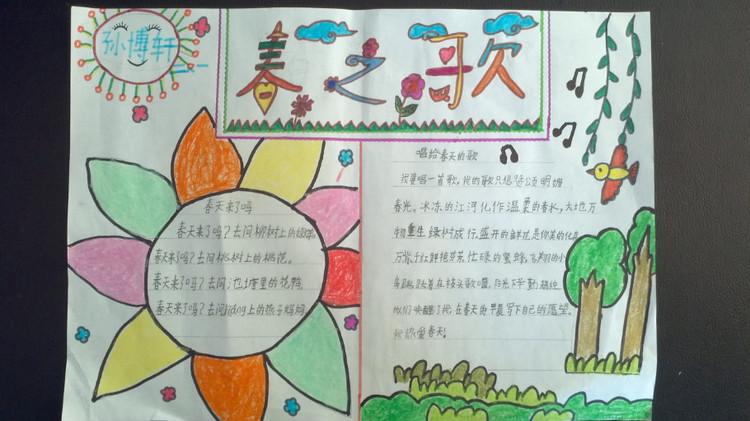 孙博轩
春之歌
春天来了吗
春天来了吗?去问柳树上的
春天来了吗?去问桃树上的桃花。
春天来了吗?去问池塘里的花鸭
春天来了吗?去问 上的燕子妈妈
唱给春天的歌
我要唱一首歌,我的歌只想 颂明媚
春光。冰冻的江河化作温柔的春水,大地万
物重生绿树成行。盛开的鲜花是你美的化身
万紫千红鲜艳芬芳忙碌的蜜蜂,飞翔的小
鸟 跃着在枝头歌唱,阳光下辛勤
你们唤醒了我,在春天的早晨写下自己的愿望。
我热爱春天!